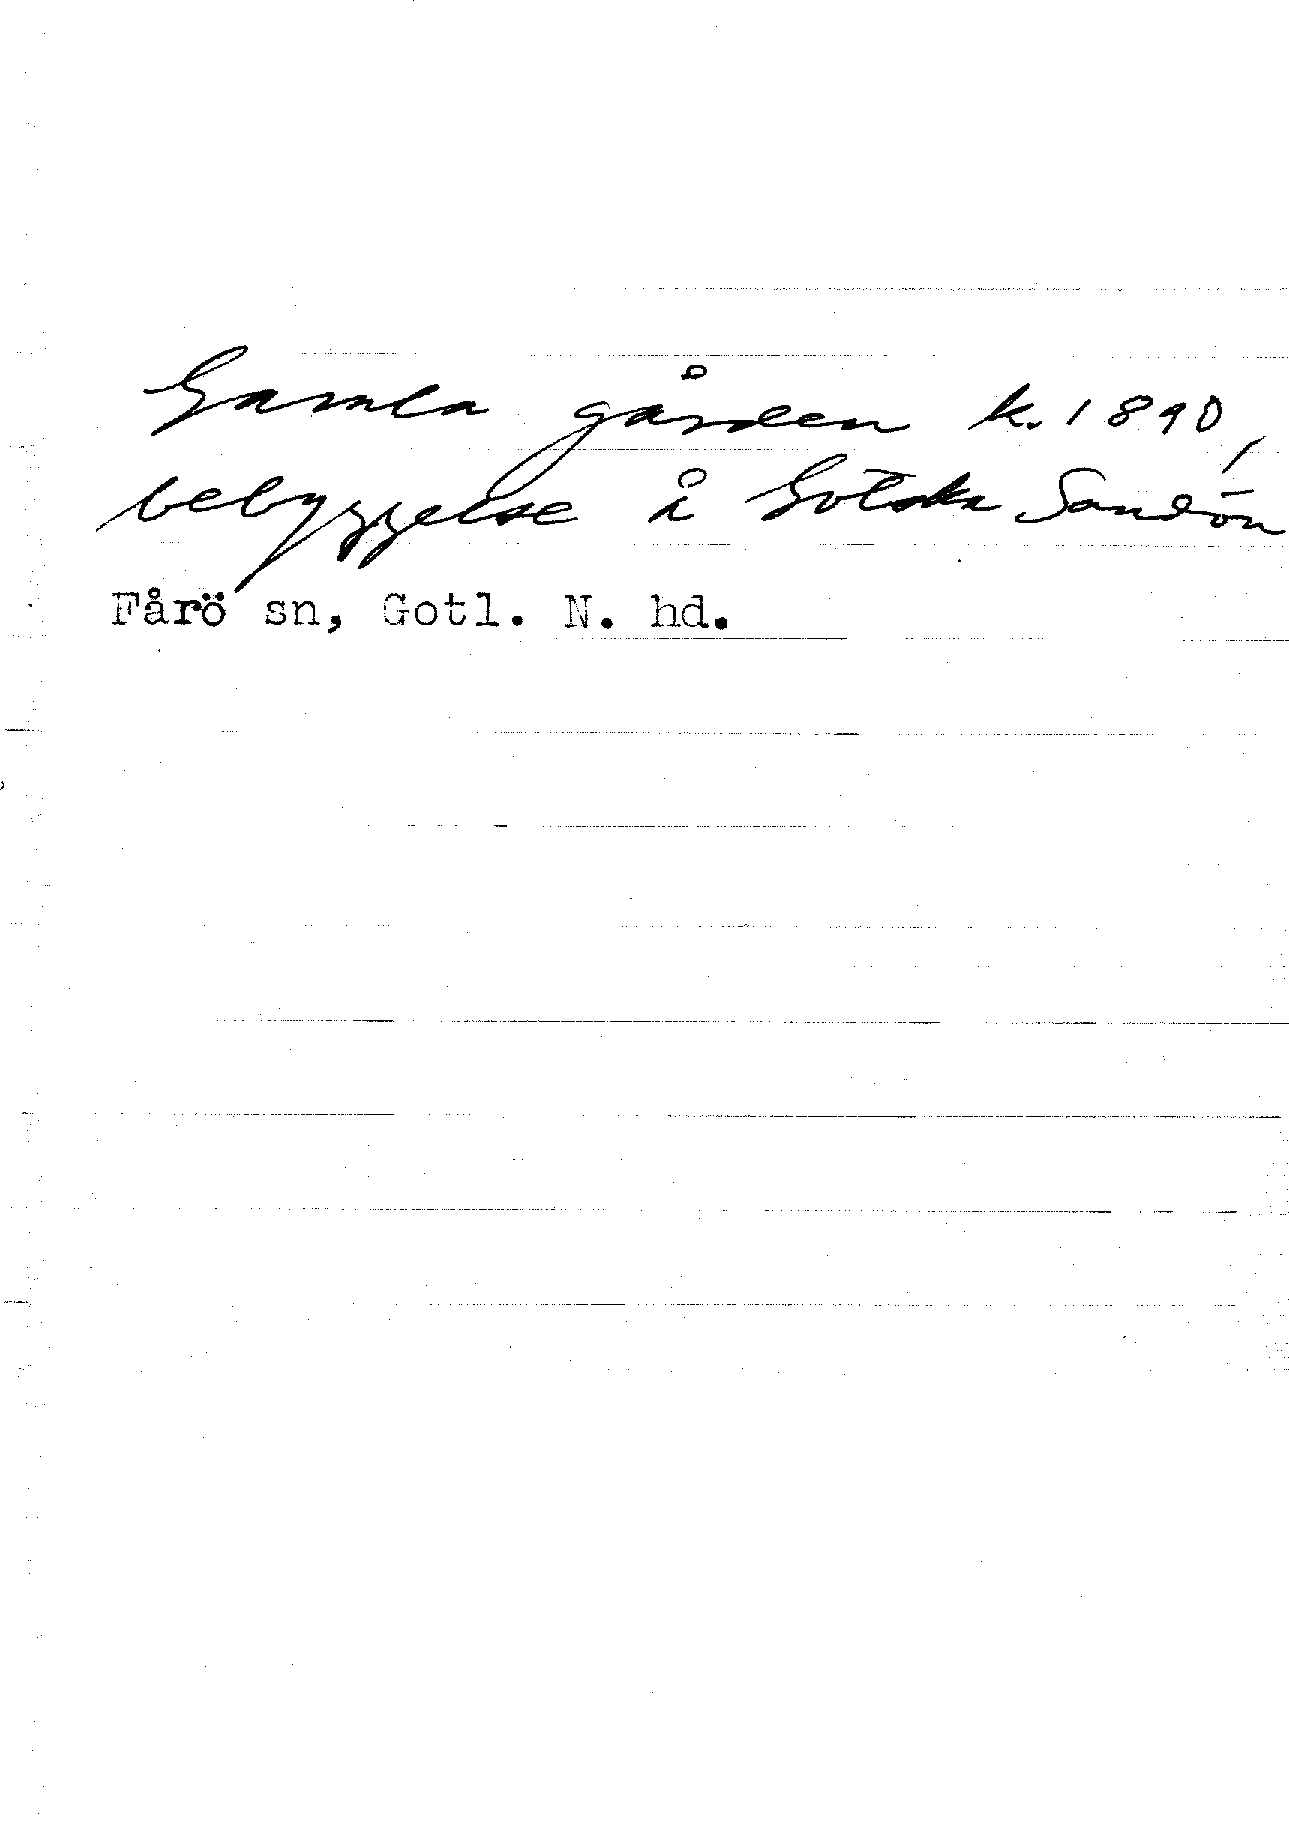 Gamla gården k. 1890,
bebyggelse å Gotska Sandön
Fårö sn, Gotl. N. hd.